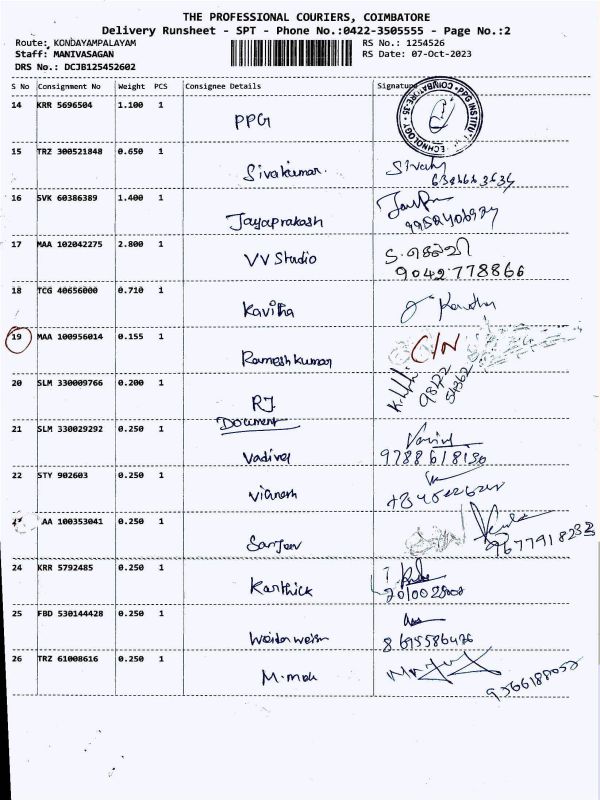 THE PROFESSIONAL COURIERS, COIMBATORE
Delivery Runsheet - SPT - Phone No.:0422-3505555 - Page No.:2
Route: KONDAYAMPALAYAM RS No.: 1254526
Staff: MANIVASAGAN RS Date: 07-Oct-2023
DRS No.: DCJB125452602
S No Consignment No Weight PCS Consignee Details Signature
14 KRR 5696504 1.100 1
PPG
15 TRZ 300521848 0.650 1
Sivakumar.
16 SVK 60386389 1.400 1
Jayaprakash
17 MAA 102042275 2.800 1
VV Studio
9042778866
18 TCG 40656000 0.710 1
Kavitha
19 MAA 100956014 0.155 1 C/N
Ramesh kumar
20 SLM 330009766 0.200 1
RJ
Document
21 SLM 330029292 0.250 1
Vadivel
22 STY 902603 0.250 1
Vignesh
AA 100353041 0.250 1
Sanjeev
9677918233
24 KRR 5792485 0.250 1
Karthick
25 FBD 530144428 0.250 1
8695586426
26 TRZ 61008616 0.250 1